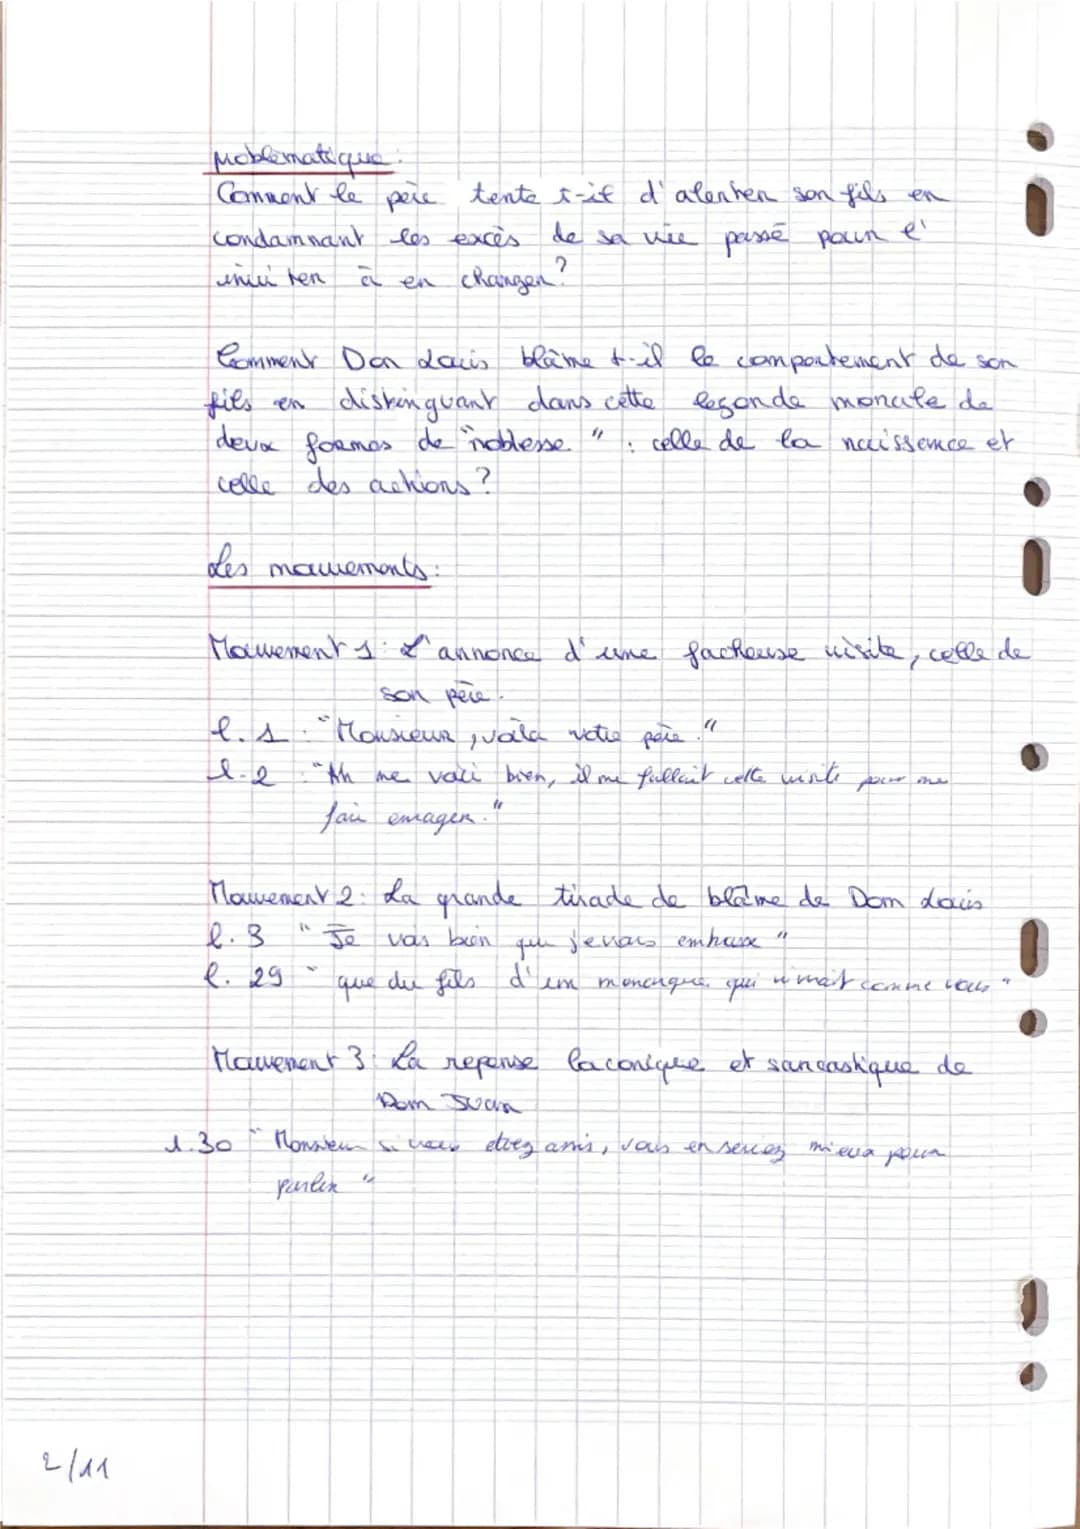 problématique :
Comment le père tente t-il d'alerter son fils en
condamnant les excès de sa vie passé pour l'
inviter à en changer ?
Comment Don Louis blâme t-il le comportement de son
fils en distinguant dans cette leçon de morale de
deux formes de "noblesse" : celle de la naissance et
celle des actions ?
Les mouvements :
Mouvement 1 : L'annonce d'une facheuse visite, celle de
son père.
l. 1 : "Monsieur, voila votre père."
l. 2 : "Ah me voici bien, il me fallait cette visite pour me
fair enrager."
Mouvement 2 : La grande tirade de blâme de Dom Louis
l. 3 " Je vois bien que je vous embrasse "
l. 29 " que du fils d'un monarque qui vivrait comme vous "
Mouvement 3 : La reponse laconique et sarcastique de
Dom Juan
l. 30 " Monsieur si vous étiez assis, vous en seriez mieux pour
parler "
2/11